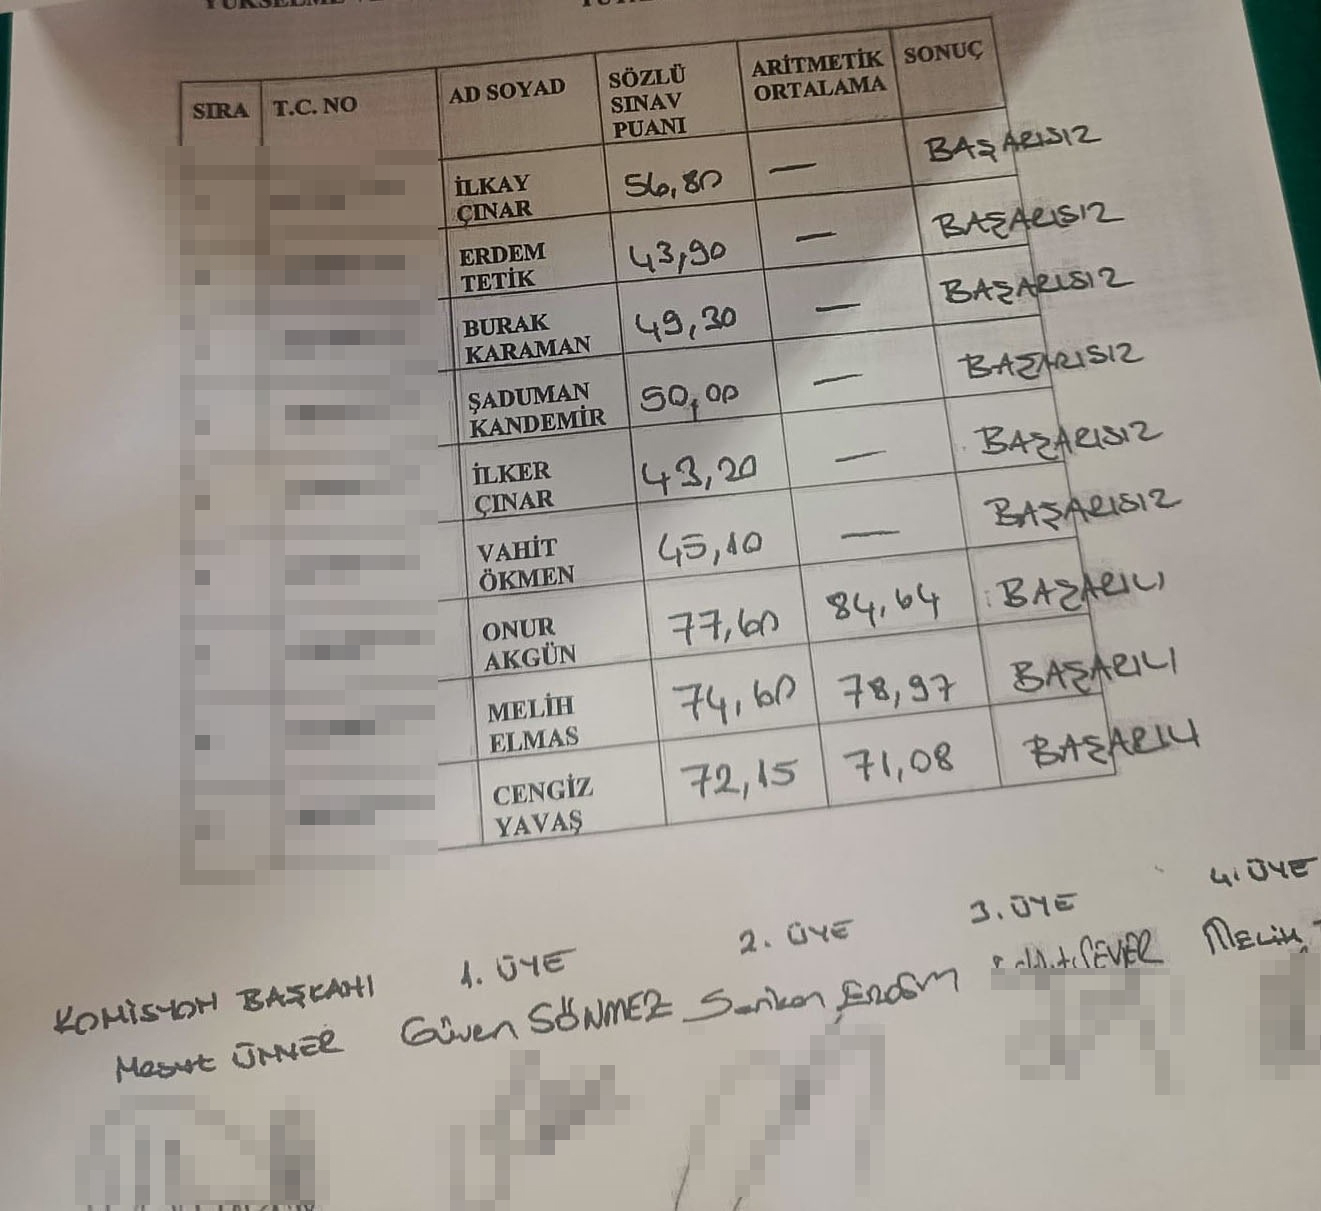 SIRA T.C. NO AD SOYAD SÖZLÜ SINAV PUANI ARİTMETİK ORTALAMA SONUÇ
İLKAY ÇINAR 56,80 — BAŞARISIZ
ERDEM TETİK 43,90 — BAŞARISIZ
BURAK KARAMAN 49,30 — BAŞARISIZ
ŞADUMAN KANDEMİR 50,00 — BAŞARISIZ
İLKER ÇINAR 43,20 — BAŞARISIZ
VAHİT ÖKMEN 45,10 — BAŞARISIZ
ONUR AKGÜN 77,60 84,64 BAŞARILI
MELİH ELMAS 74,60 78,97 BAŞARILI
CENGİZ YAVAŞ 72,15 71,08 BAŞARILI
KOMİSYON BAŞKANI 1. ÜYE 2. ÜYE 3. ÜYE 4. ÜYE
Mesut ÜNVER Güven SÖNMEZ Serkan ERDEM SEVER MELİH